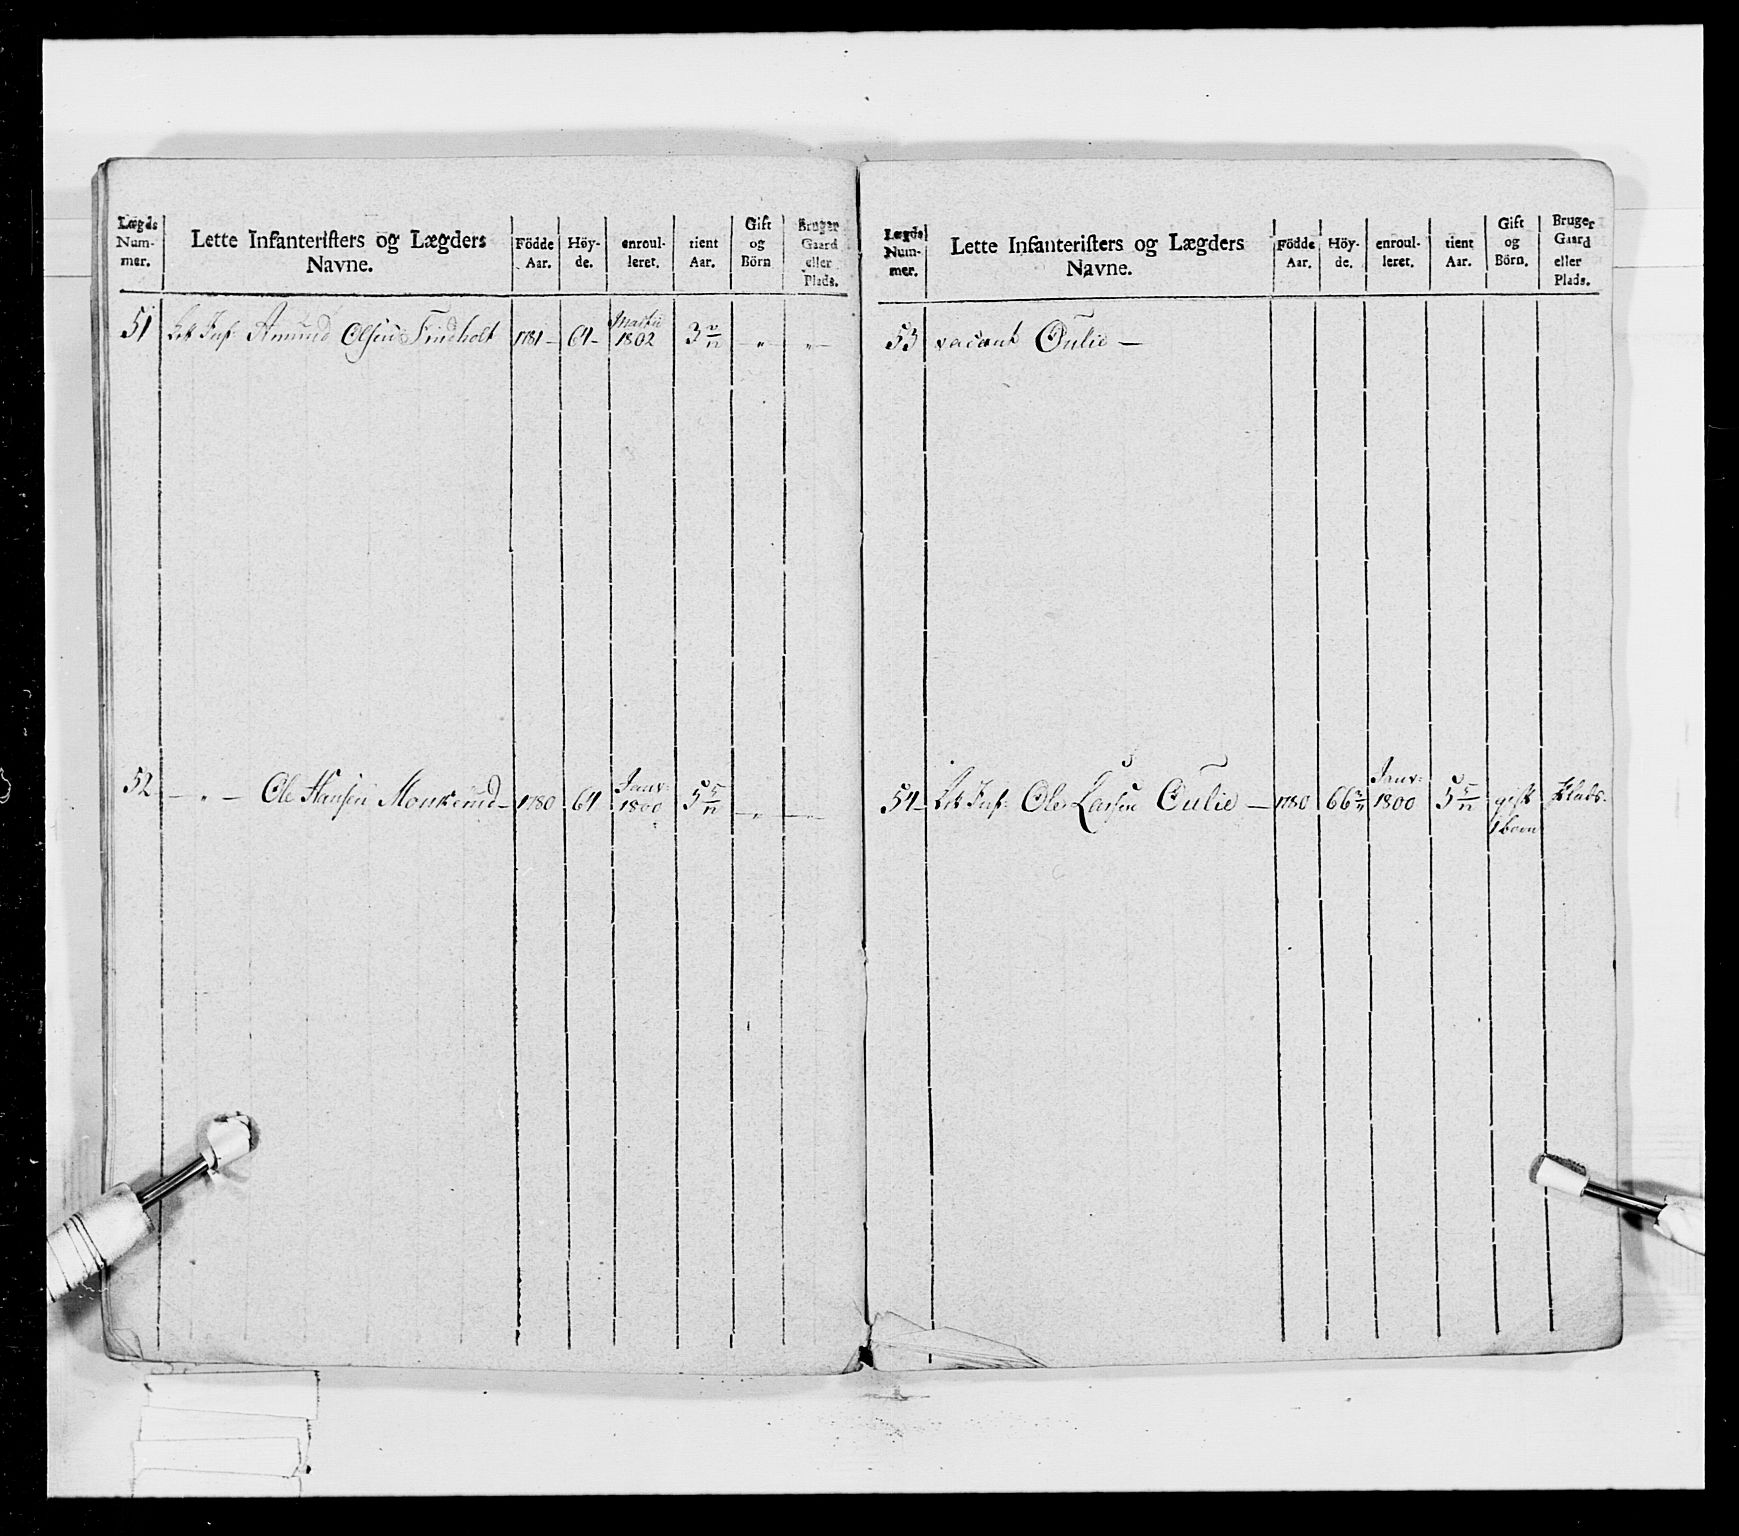 Lægds Num- mer. | Lette Infanteristers og Lægders Navne. | Födde Aar. | Höy- de. | enroul- leret. | tient Aar. | Gift og Börn | Bruger Gaard eller Plads.
51 | Let Inf: Amund Olsen Findholt | 1781 – | 64 – | Martii 1802 | 3 | – " – | – " –
52 | – " – Ole Hansen Monkerud – | 1780 | 64 | Janv: 1800 | 5 5/12 | – " – | –
Lægds Num- mer. | Lette Infanteristers og Lægders Navne. | Födde Aar. | Höy- de. | enroul- leret. | tient Aar. | Gift og Börn. | Bruger Gaard eller Plads.
53 | vacant Oulie –
54 – | Let Inf: Ole Larsen Oulie – | 1780 | 66 | Janv: 1800 | 5 5/12 | gift 1 born | Plads.